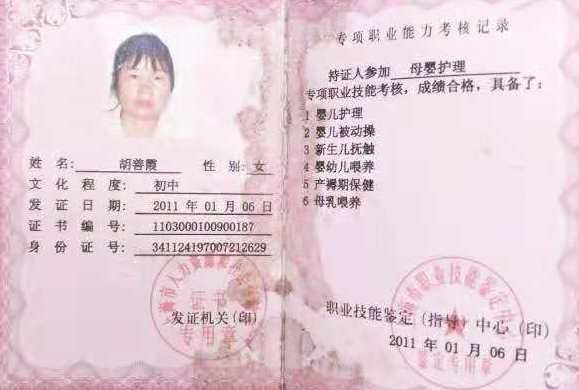 姓 名: 胡善霞 性 别: 女
文 化 程 度: 初中
发 证 日 期: 2011 年 01 月 06 日
证 书 编 号: 1103000100900187
身 份 证 号: 341124197007212629
发证机关(印)
专项职业能力考核记录
持证人参加 母婴护理
专项职业技能考核，成绩合格，具备了:
1 婴儿护理
2 婴儿被动操
3 新生儿抚触
4 婴幼儿喂养
5 产褥期保健
6 母乳喂养
职业技能鉴定(指导)中心(印)
2011 年 01 月 06 日